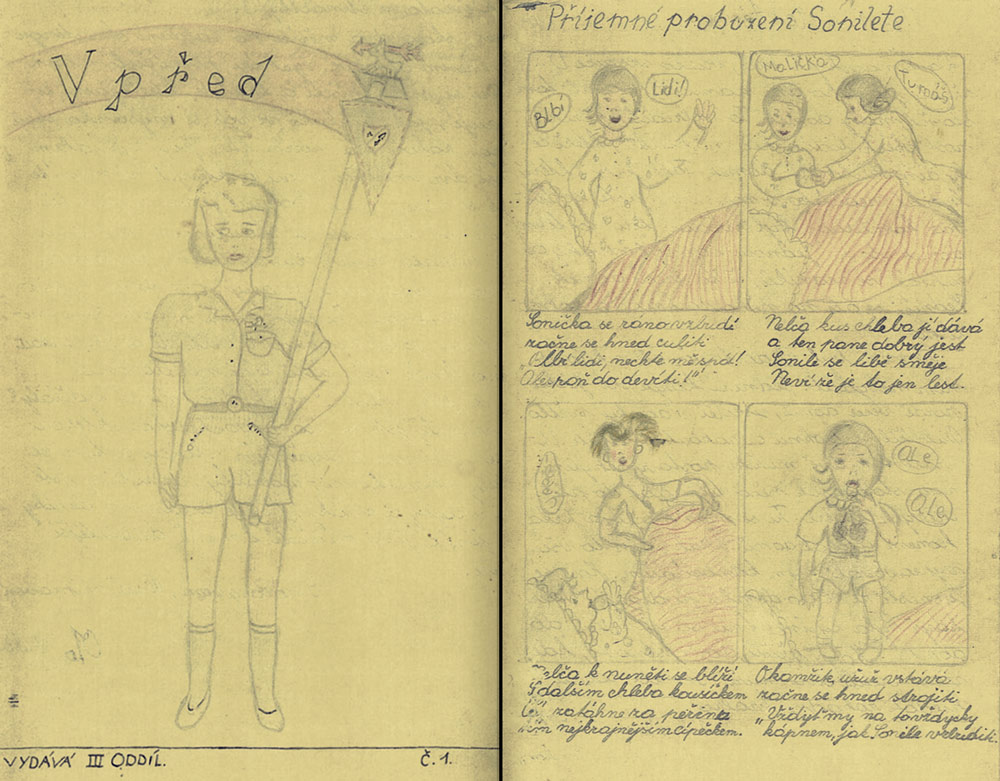 Vpřed
VYDÁVÁ III ODDÍL.
Č.1.
Příjemné probuzení Sonilete
Blbí
Lidi!
Malička
Tumáš
Sonička se ráno vzbudí
začne se hned culiti
„Blbí lidi, nechte mě spát!
Alespoň do devíti!"
Nelča kus chleba jí dává
a ten pane dobrý jest
Sonile se libě směje
Neví že je to jen lest.
Nelča k nuněti se blíží
S dalším chleba kousíčkem
zatáhne za peřinu
nejkrajnějším cípečkem.
Ale
Ale
Okamžitě, už už vstává
začne se hned strojiti
„Vždyť my na to vždycky
kápnem, jak Sonile vzbuditi.